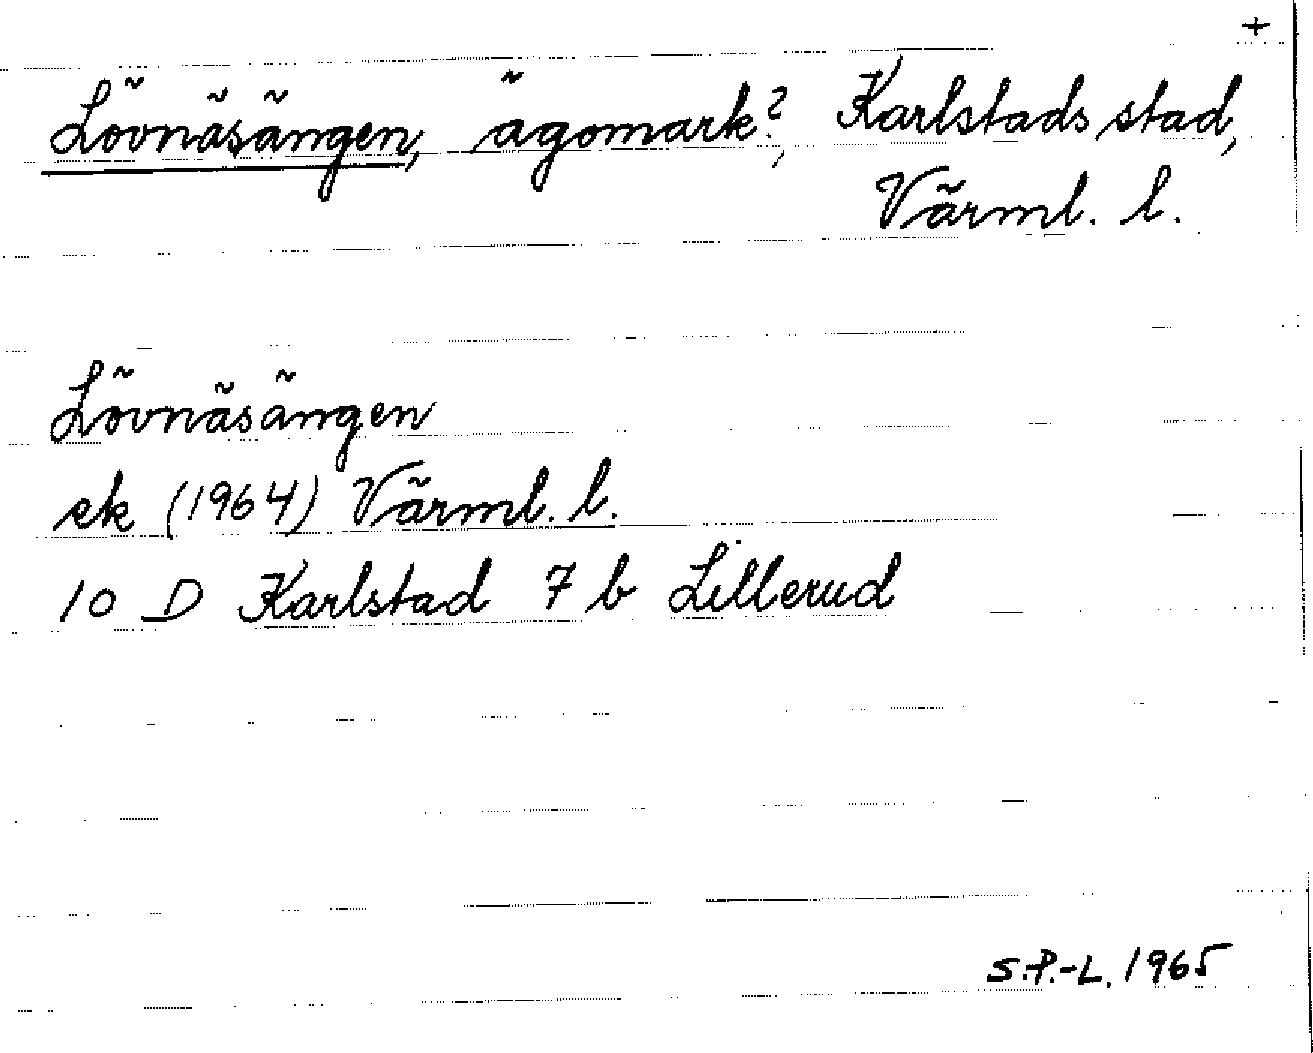 +
Lövnäsängen, ägomark?, Karlstads stad,
Värml. l.
Lövnäsängen
ek (1964) Värml. l.
10 D Karlstad 7 b Lillerud
S.P.-L. 1965